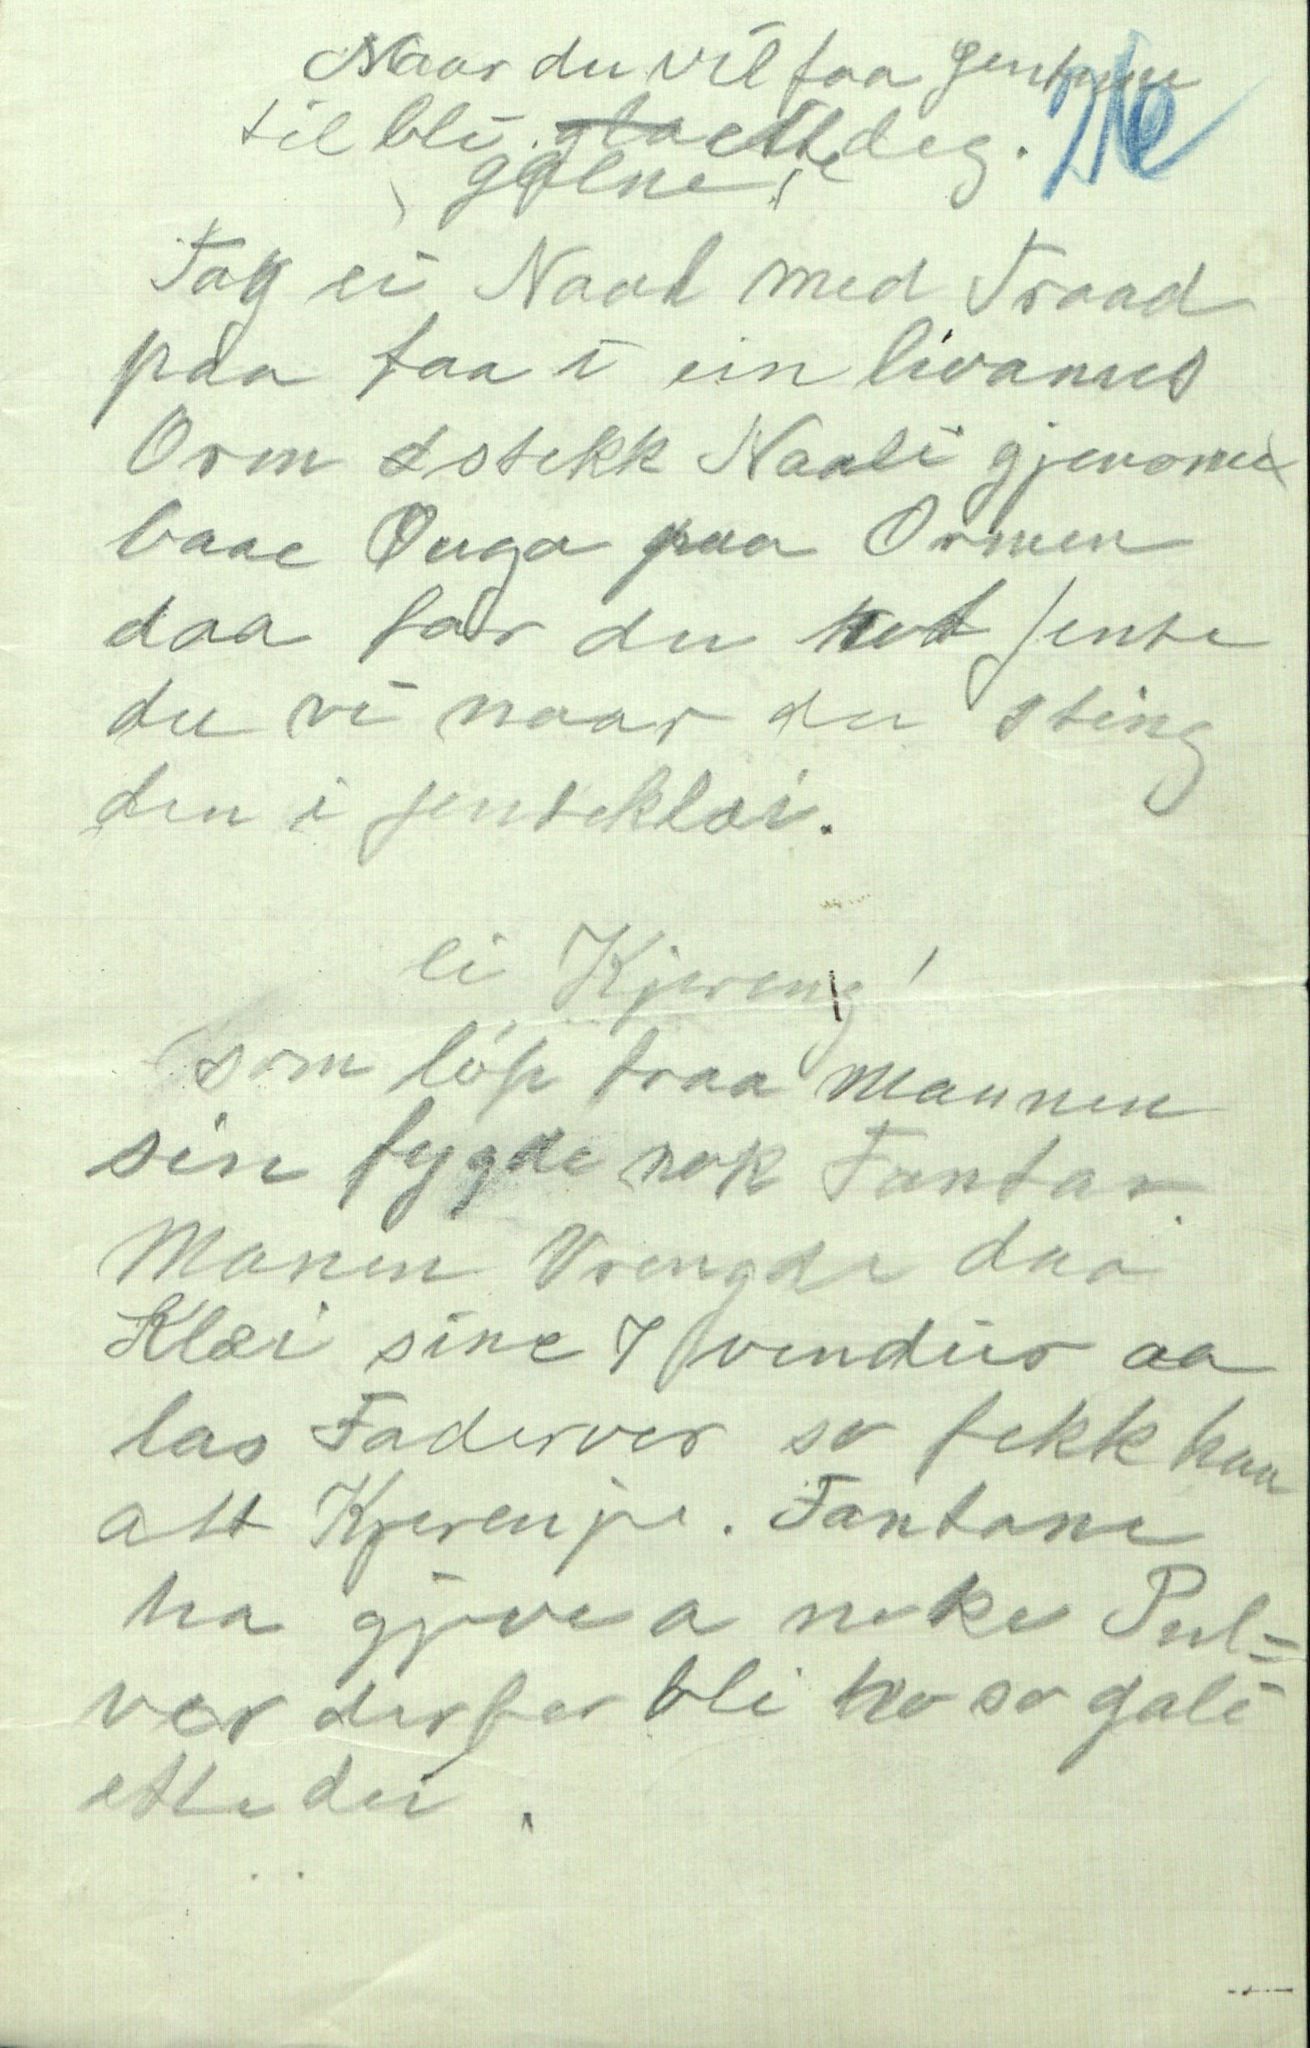 Naar du vil faa gentune
til bli glae ette deg.
galne
Tag ei Naal med Traad
paa faa i ein livanus
Orm & stekk Naali gjenome
baae Ouga paa Ormen
daa får du kot Jente
du vi naar du sting
den i jenteklæi.
ei Kjereng!
som löp fraa Mannen
sin fygde nok Fantar.
Manen Vrengde daa
Klæi sine 7 vendüs aa
las Fadervor so fekk han
att Kjerenje. Fantane
ha gjeve a noke Pul=
ver derfor bli ho so gali
ette dei.